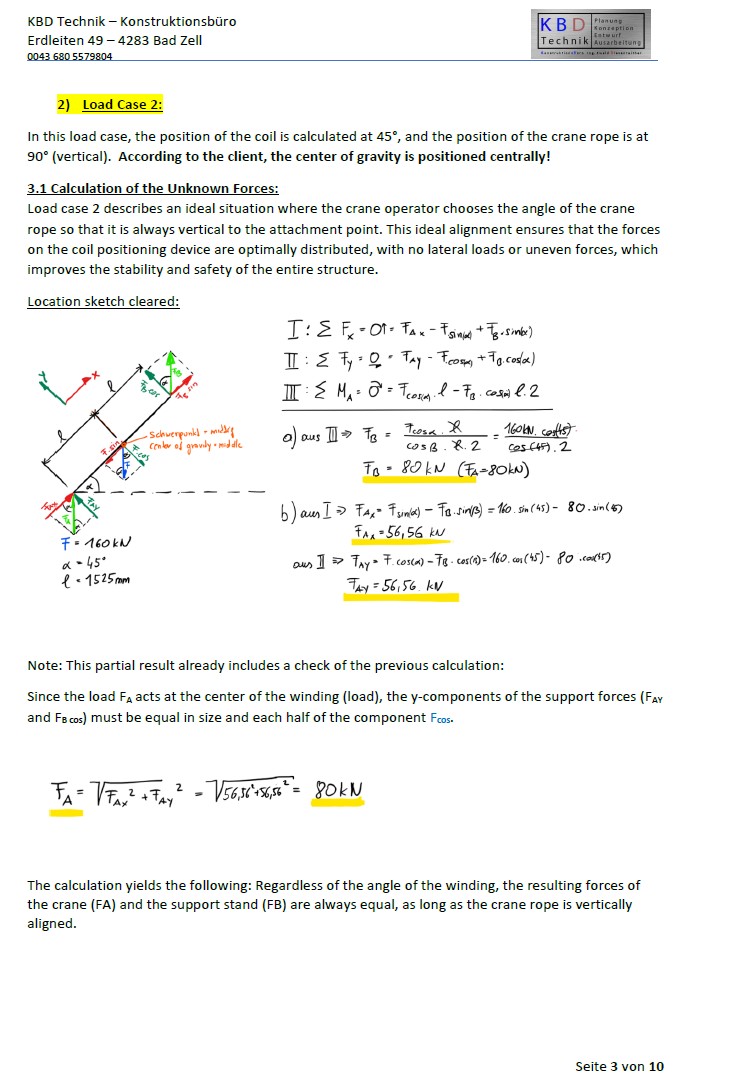 KBD Technik – Konstruktionsbüro
Erdleiten 49 – 4283 Bad Zell
0043 680 5579804
K B D
Technik
Planung
Konzeption
Entwurf
Ausarbeitung
2) Load Case 2:
In this load case, the position of the coil is calculated at 45°, and the position of the crane rope is at
90° (vertical). According to the client, the center of gravity is positioned centrally!
3.1 Calculation of the Unknown Forces:
Load case 2 describes an ideal situation where the crane operator chooses the angle of the crane
rope so that it is always vertical to the attachment point. This ideal alignment ensures that the forces
on the coil positioning device are optimally distributed, with no lateral loads or uneven forces, which
improves the stability and safety of the entire structure.
Location sketch cleared:
Y
x
l
l
FB
FB cos
FB sin
α
Schwerpunkt = mittig
center of gravity = middle
F sin
F cos
F
α
FAX
FAY
FA
F = 160 kN
α = 45°
l = 1525 mm
I: Σ Fx = 0 = FAx - F sin(α) + FB · sin(α)
II: Σ Fy = 0 = FAy - F cos(α) + FB · cos(α)
III: Σ MA = 0 = F cos(α) · l - FB · cos(α) l · 2
a) aus III ⇒ FB = F cos α · l / cos β · l · 2 = 160kN · cos(45) / cos(45) · 2
FB = 80 kN (FA = 80kN)
b) aus I ⇒ FAx = F sin(α) - FB · sin(β) = 160 · sin(45) - 80 · sin(45)
FAx = 56,56 kN
aus II ⇒ FAy = F · cos(α) - FB · cos(β) = 160 · cos(45) - 80 · cos(45)
FAy = 56,56 kN
Note: This partial result already includes a check of the previous calculation:
Since the load FA acts at the center of the winding (load), the y-components of the support forces (FAY
and FB cos) must be equal in size and each half of the component Fcos.
FA = √FAx² + FAy² = √56,56² + 56,56² = 80kN
The calculation yields the following: Regardless of the angle of the winding, the resulting forces of
the crane (FA) and the support stand (FB) are always equal, as long as the crane rope is vertically
aligned.
Seite 3 von 10